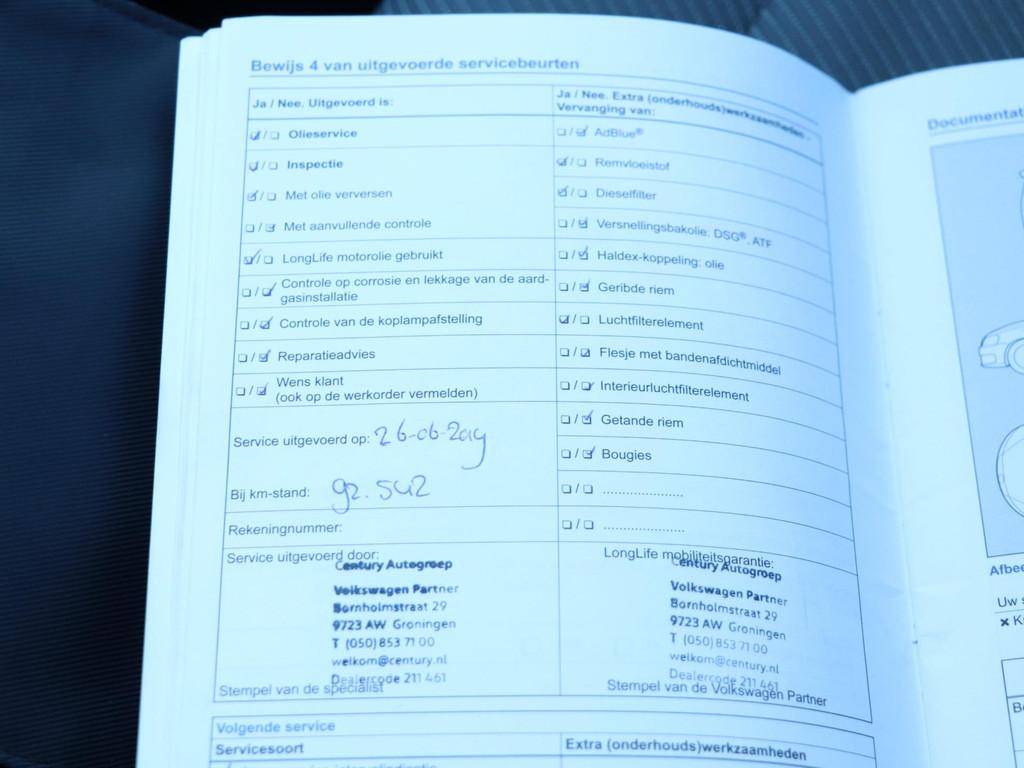 Bewijs 4 van uitgevoerde servicebeurten
Ja / Nee. Uitgevoerd is:
Olieservice
Inspectie
Met olie verversen
Met aanvullende controle
LongLife motorolie gebruikt
Controle op corrosie en lekkage van de aard-
gasinstallatie
Controle van de koplampafstelling
Reparatieadvies
Wens klant
(ook op de werkorder vermelden)
Service uitgevoerd op: 26-06-2019
Bij km-stand: 92.542
Rekeningnummer:
Ja / Nee. Extra (onderhouds)werkzaamheden -
Vervanging van:
AdBlue®
Remvloeistof
Dieselfilter
Versnellingsbakolie: DSG®, ATF
Haldex-koppeling: olie
Geribde riem
Luchtfilterelement
Flesje met bandenafdichtmiddel
Interieurluchtfilterelement
Getande riem
Bougies
Service uitgevoerd door:
Century Autogroep
Volkswagen Partner
Bornholmstraat 29
9723 AW Groningen
T (050) 853 71 00
welkom@century.nl
Dealercode 211 461
Stempel van de specialist
LongLife mobiliteitsgarantie:
Century Autogroep
Volkswagen Partner
Bornholmstraat 29
9723 AW Groningen
T (050) 853 71 00
welkom@century.nl
Dealercode 211 461
Stempel van de Volkswagen Partner
Volgende service
Servicesoort
Extra (onderhouds)werkzaamheden
Documentat
Afbee
Uw s